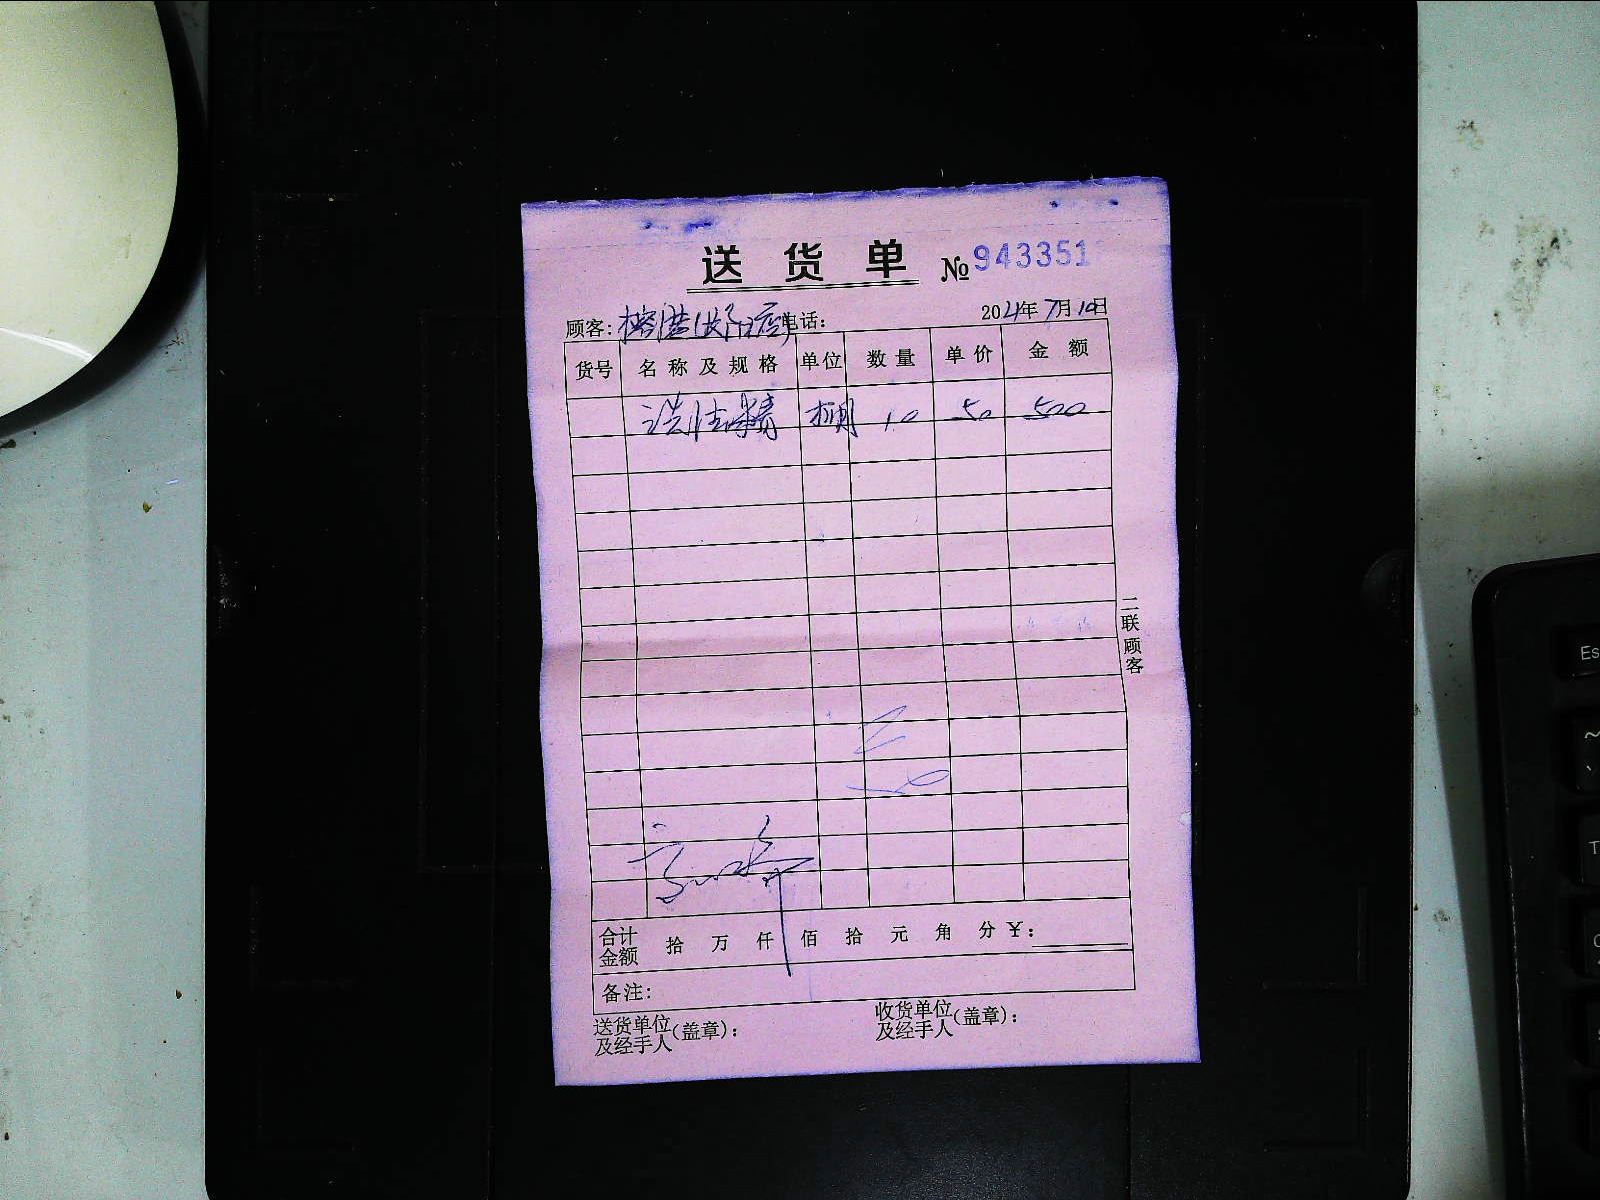 送货单 № 943351
顾客: 电话: 2021年7月10日
货号 名称及规格 单位 数量 单价 金额
洗洁精 桶 10 50 500
二联顾客
合计金额 拾 万 仟 佰 拾 元 角 分 ¥:
备注:
送货单位及经手人(盖章): 收货单位及经手人(盖章):
Es